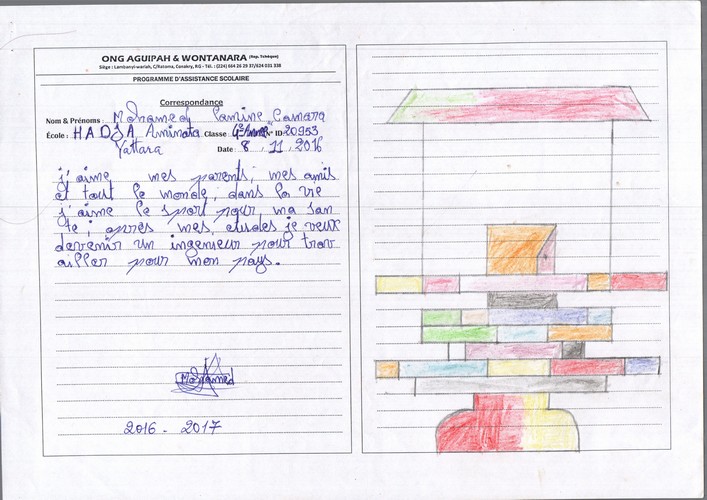 ONG AGUIPAH & WONTANARA (Rep. Tchèque)
Siège : Lambanyi-wariah, C/Ratoma, Conakry, RG - Tél. : (224) 664 26 29 37/624 031 338
PROGRAMME D'ASSISTANCE SCOLAIRE
Correspondance
Nom & Prénoms : Mohamed Lamine Camara
École : HADJA Aminata Classe 4e Année N° ID: 20953
Yattara Date : 8 . 11 . 2016
j'aime mes parents, mes amis
et tout le monde, dans la vie
j'aime le sport pour ma san
te ; après mes etudes je veux
devenir un ingenieur pour trav
ailler pour mon pays.
Mohamed
2016 - 2017